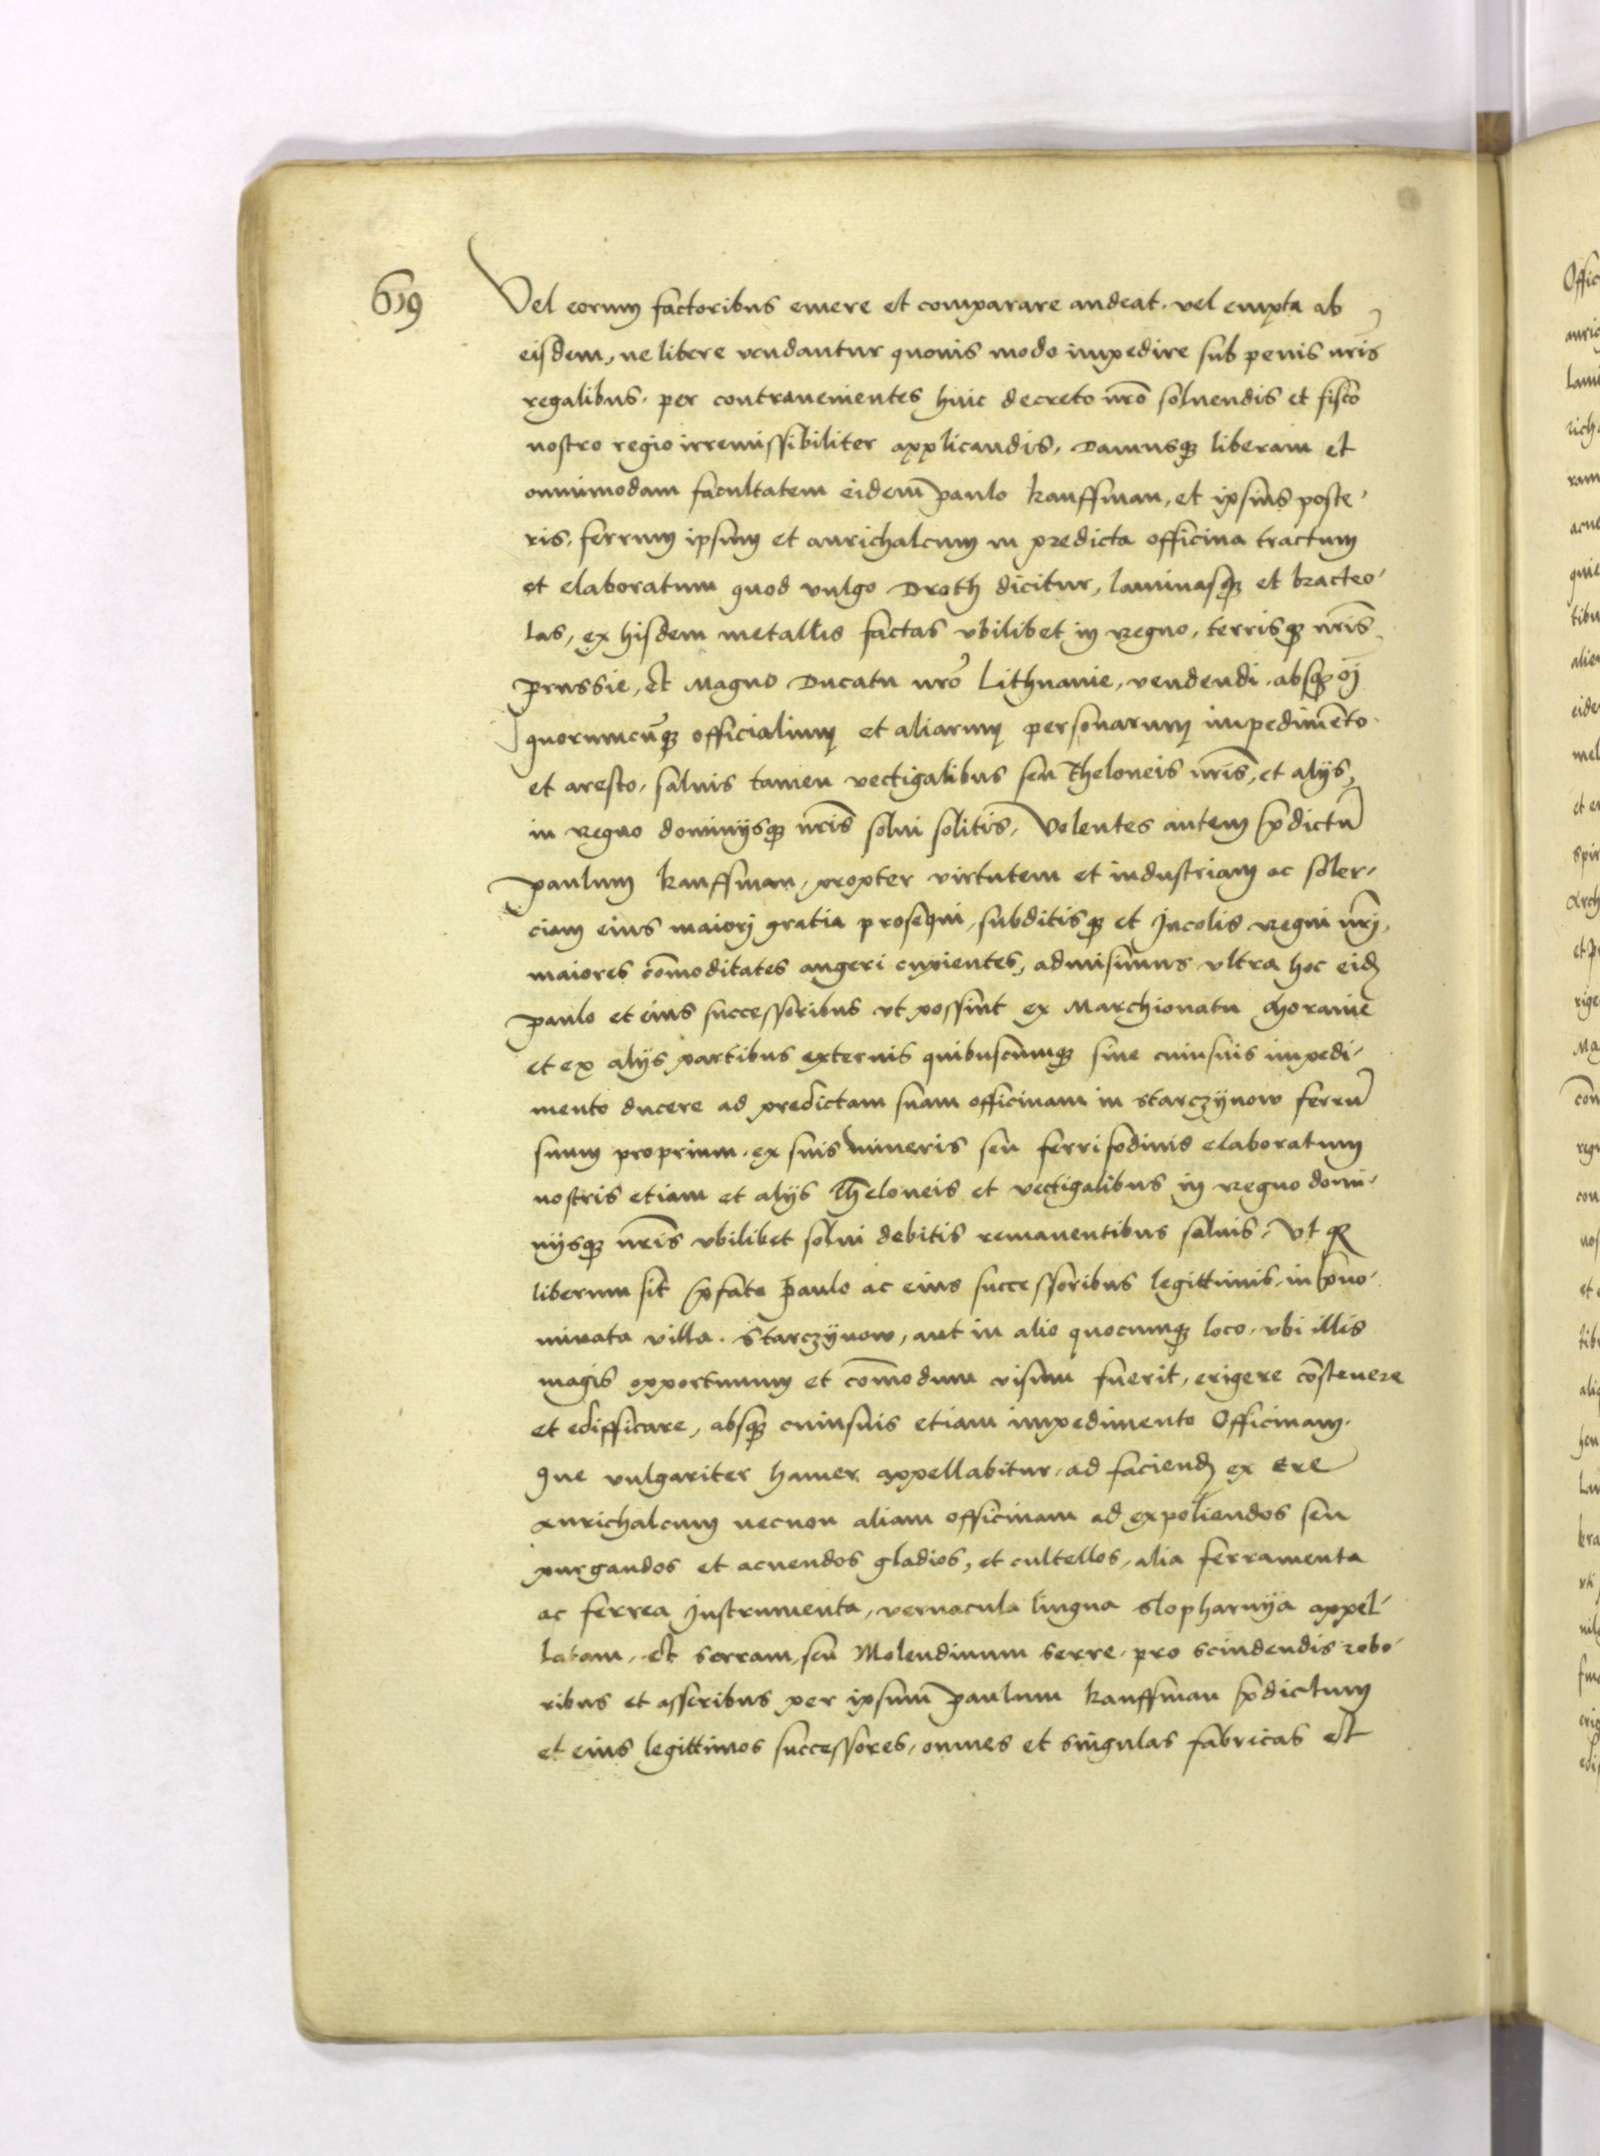 619
Vel eorum factoribus emere et comparare audeat. vel empta ab
eisdem, ne libere vendantur quovis modo impedire sub penis nr̃is
regalibus. per contravenientes huic decreto nr̃o solvendis et fisco
nostro regio irremissibiliter applicandis, Damusq; liberam et
omnimodam facultatem eidem Paulo Kauffman, et ipsius poste-
ris, ferrum ipsum et aurichalcum in predicta officina tractum
et elaboratum quod vulgo Droth dicitur, laminasq; et bracteo-
las, ex hisdem metallis factas ubilibet in Regno, terrisq; nr̃is
Prussie, et Magno Ducatu nr̃o Lithuanie, vendendi. absq; oĩ
quorumcũq; officialium et aliarum personarum impedimẽto
et aresto. salvis tamen vectigalibus seu theloneis nr̃is, et alijs,
in Regno dominijsq; nr̃is solvi solitis, Volentes autem p̃dictũ
Paulum Kauffman, propter virtutem et industriam ac soler-
ciam eius maiorj gratia prosequi, subditisq; et Incolis Regni nr̃j,
maiores com̃oditates augeri cupientes, admisimus ultra hoc eid̃
Paulo et eius successoribus ut possint ex Marchionatu Moravie
et ex alijs partibus externis quibuscumq; sine cuiusvis impedi-
mento ducere ad predictam suam officinam in Starczynow ferrũ
suum proprium. ex suis mineris seu ferrifodinis elaboratum
nostris etiam et alijs Theloneis et vectigalibus in Regno domi-
nijsq; nr̃is ubilibet solvi debitis remanentibus salvis, Ut q
liberum sit p̃fato Paulo ac eius successoribus legittimis, in p̃no-
minata villa. Starczynow, aut in alio quocumq; loco, ubi illis
magis opportunum et com̃odum visum fuerit, erigere cõstruere
et edifficare, absq; cuiusvis etiam impedimento Officinam.
Que vulgariter hamer appellabitur, ad faciend̃ ex ere
aurichalcum necnon aliam officinam ad expoliendos seu
purgandos et acuendos gladios, et cultellos, alia ferramenta
ac ferrea Instrumenta, vernacula lingua Slopharnya appel-
latam, et serram, seu Molendinum serre, pro scindendis robo-
ribus et asseribus per ipsum Paulum Kauffman p̃dictum
et eius legittimos successores, omnes et singulas fabricas et